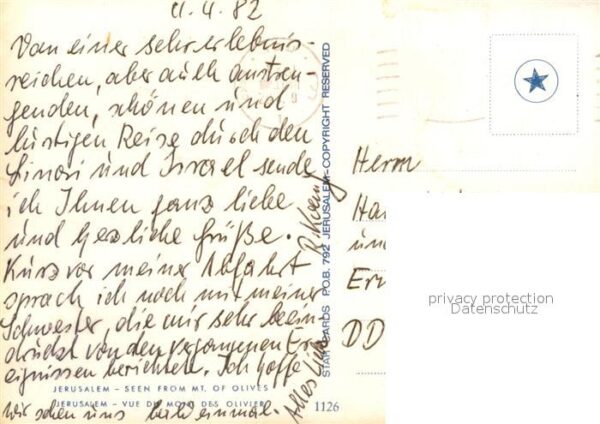 11.4.82
Von einer sehr erlebnis-
reichen, aber auch anstren-
genden, schönen und
lustigen Reise durch den
Sinai und Israel sende
ich Ihnen ganz liebe
und herzliche Grüße.
Kurz vor meiner Abfahrt
sprach ich noch mit meiner
Schwester, die mir sehr beein-
druckt von den vergangenen Er-
eignissen berichtete. Ich hoffe
wir sehen uns bald einmal.
Alles Liebe
JERUSALEM – SEEN FROM MT. OF OLIVES
JERUSALEM – VUE DU MONT DES OLIVIERS
1126
STAR CARDS P.O.B. 792 JERUSALEM–COPYRIGHT RESERVED
Herrn
Ha
un
DD
privacy protection
Datenschutz